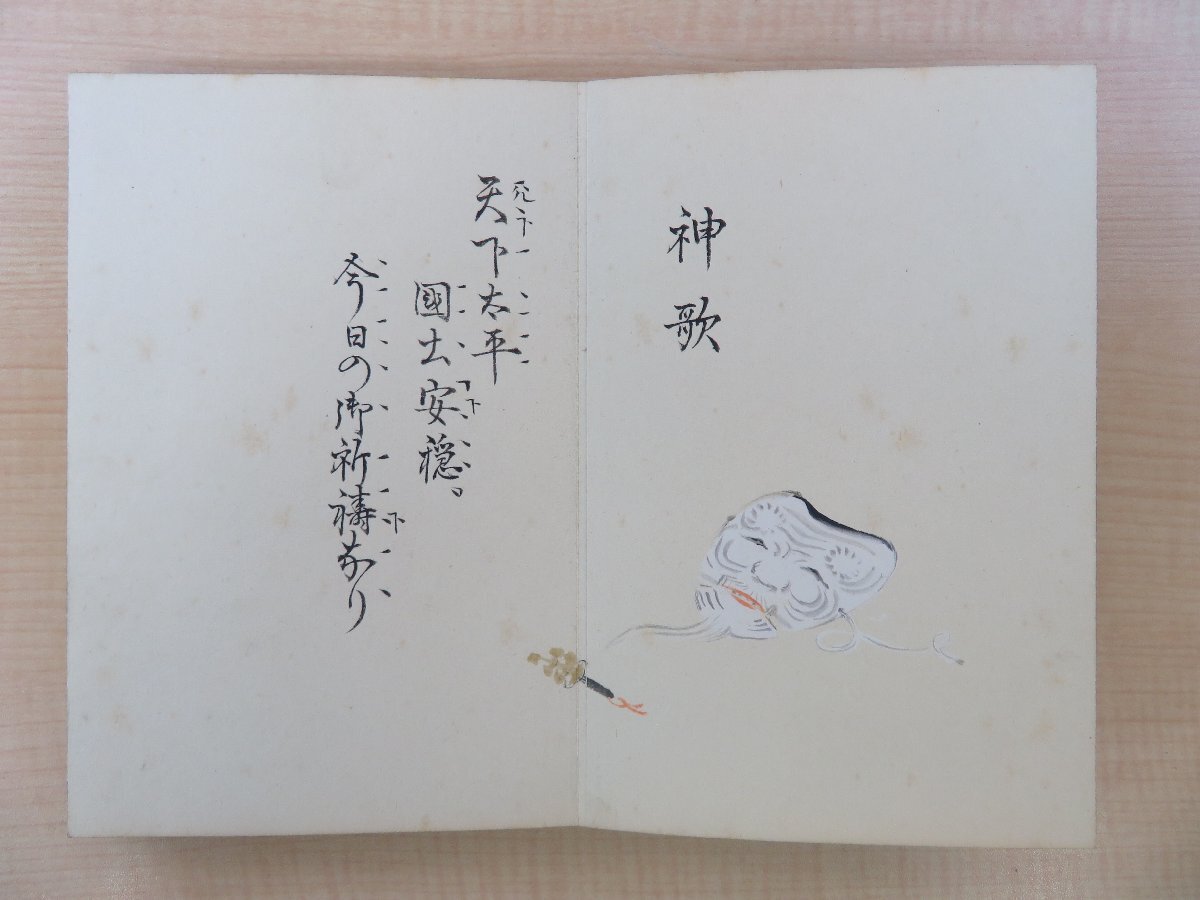 神歌
天下太平
國土安穏。
今日の御祈禱なり